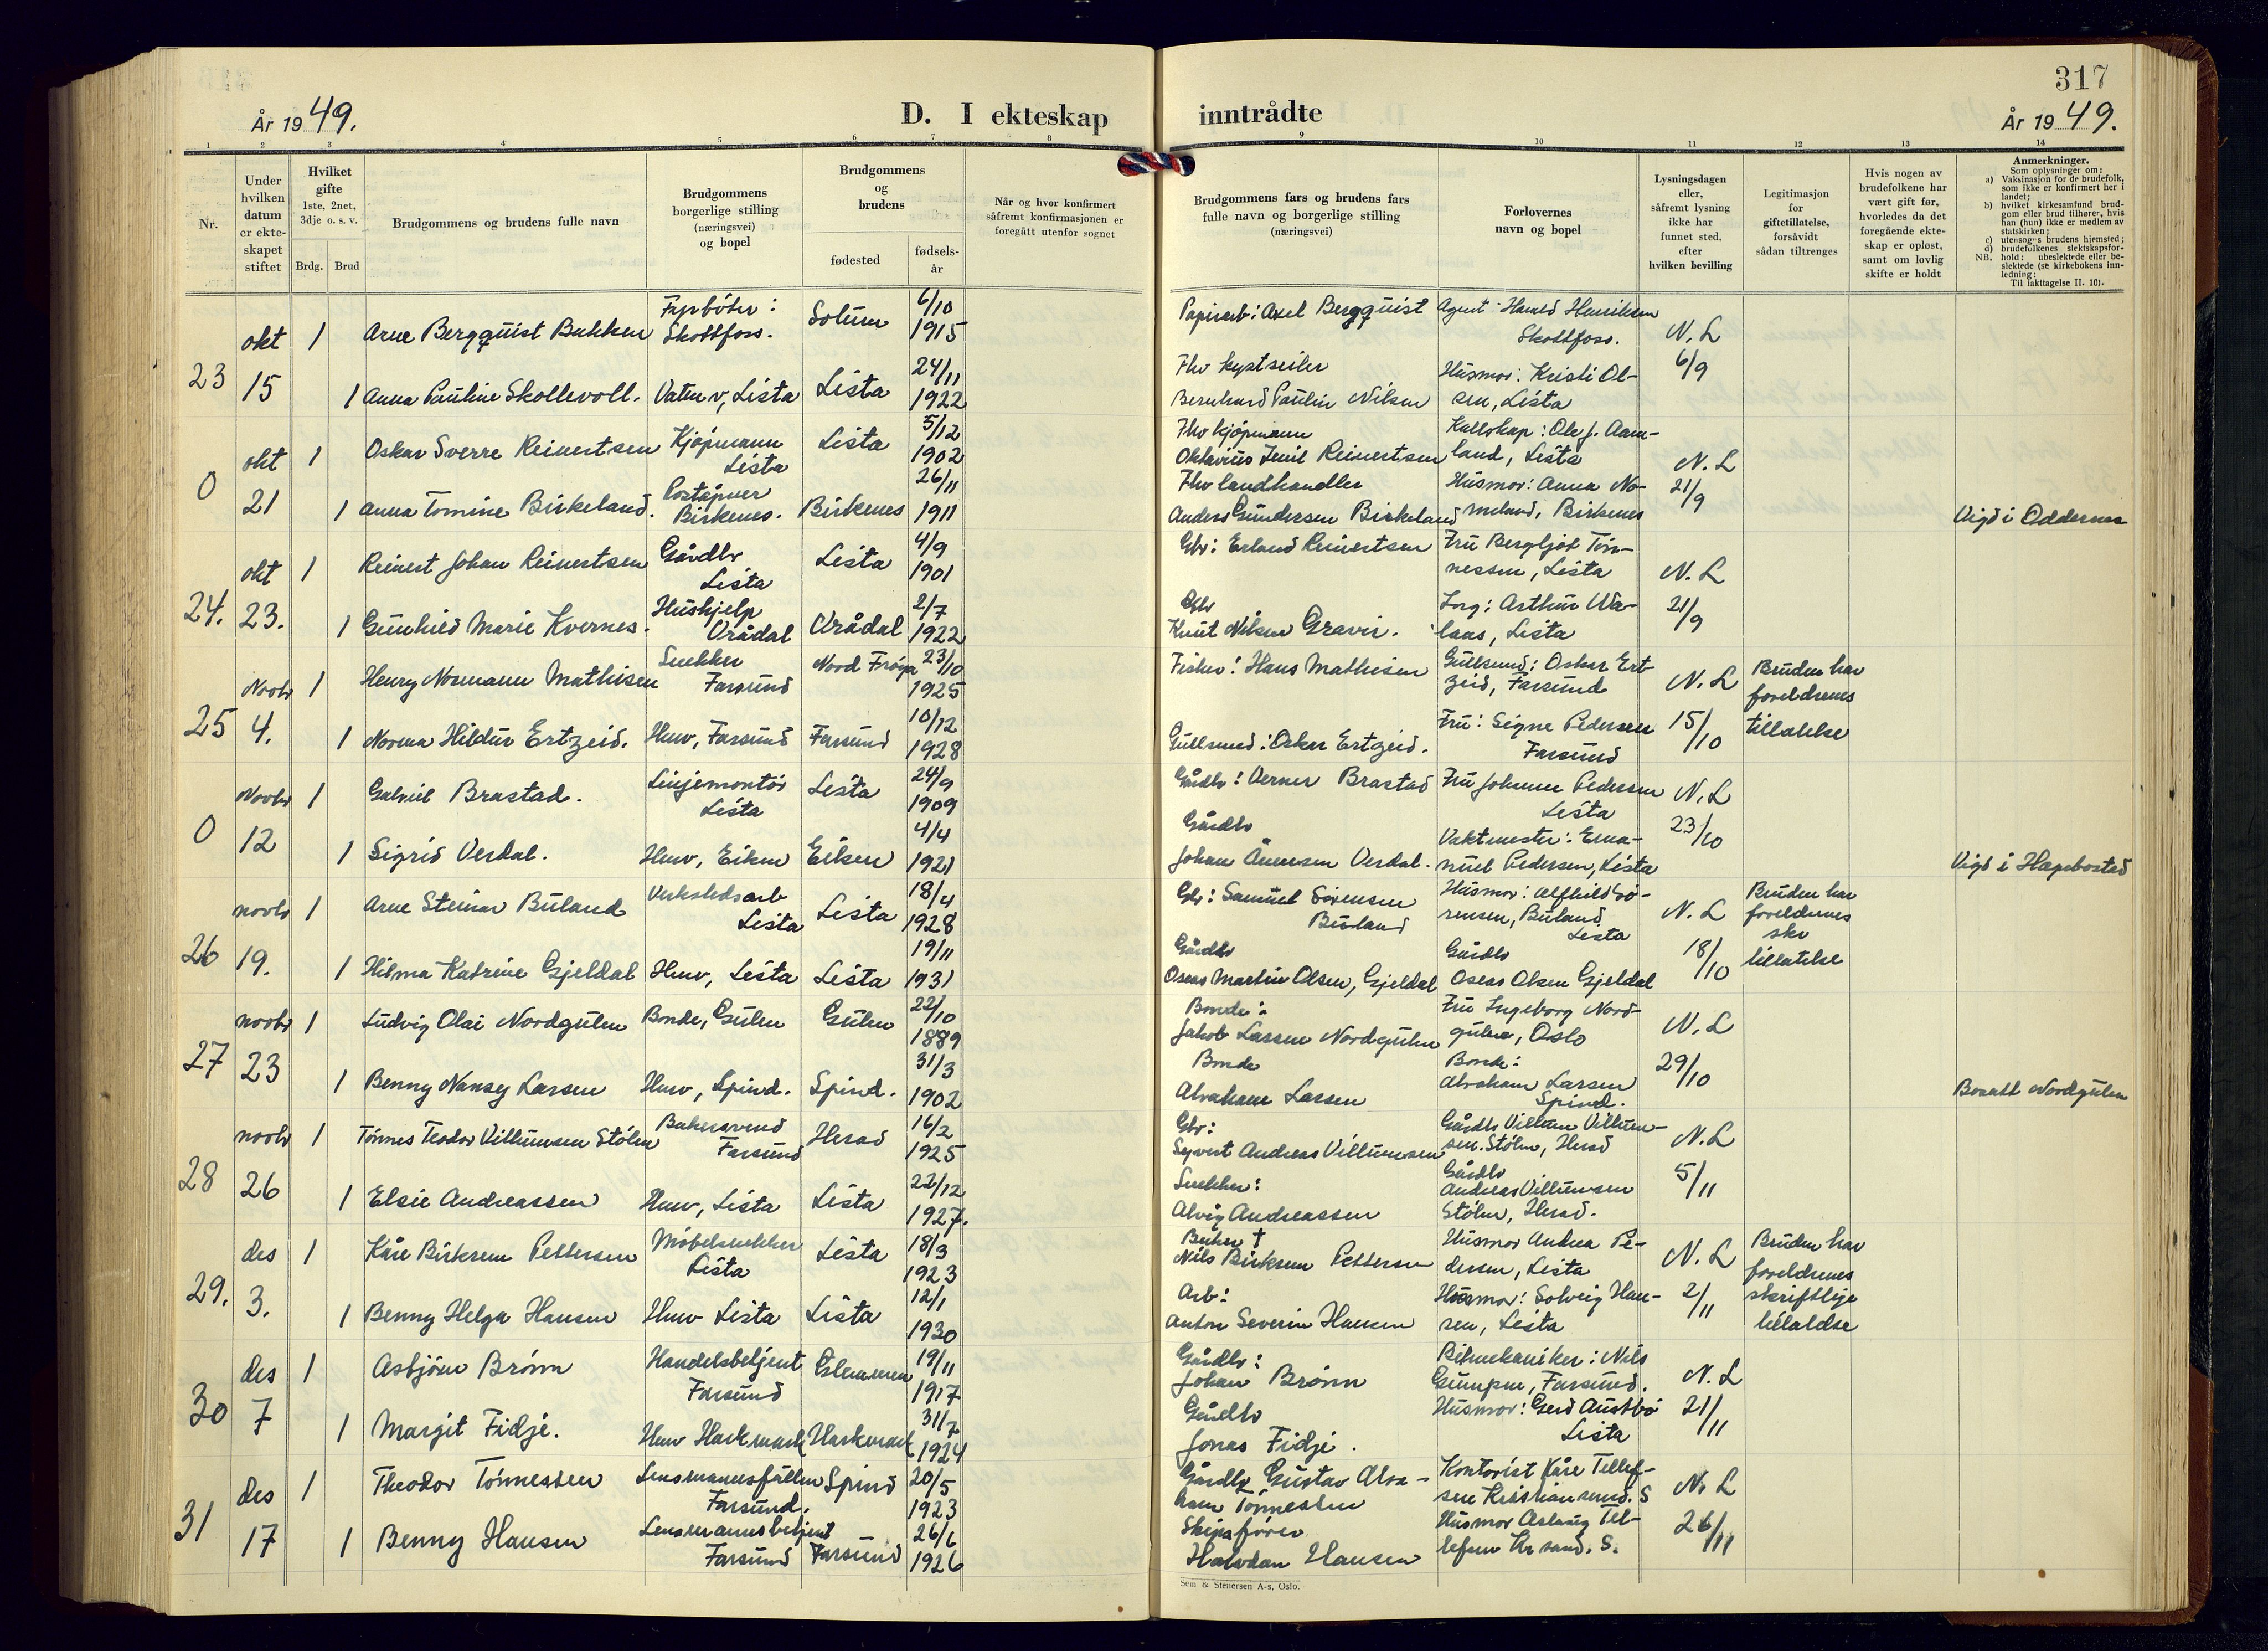 317
År 1949.
D. I ekteskap inntrådte
År 1949.
1 2 3 4 5 6 7 8 9 10 11 12 13 14
Nr.
Under
hvilken
datum
er ekte-
skapet
stiftet
Hvilket
gifte
1ste, 2net,
3dje o. s. v.
Brdg. Brud
Brudgommens og brudens fulle navn
Brudgommens
borgerlige stilling
(næringsvei)
og bopel
Brudgommens
og
brudens
fødested
fødsels-
år
Når og hvor konfirmert
såfremt konfirmasjonen er
foregått utenfor sognet
Brudgommens fars og brudens fars
fulle navn og borgerlige stilling
(næringsvei)
Forlovernes
navn og bopel
Lysningsdagen
eller,
såfremt lysning
ikke har
funnet sted,
efter
hvilken bevilling
Legitimasjon
for
giftetillatelse,
forsåvidt
sådan tiltrenges
Hvis nogen av
brudefolkene har
vært gift før,
hvorledes da det
foregående ekte-
skap er opløst,
samt om lovlig
skifte er holdt
Anmerkninger.
Som oplysninger om:
a) Vaksinasjon for de brudefolk,
som ikke er konfirmert her i
landet;
b) hvilket kirkesamfund brud-
gom eller brud tilhører, hvis
han (hun) ikke er medlem av
statskirken;
c) utensogns brudens hjemsted;
d) brudefolkenes slektskapsfor-
NB. hold: ubeslektede eller be-
slektede (se kirkebokens inn-
ledning;
Til iakttagelse II. 10).
23
okt
15
1
Arne Bergquist Bakken
Fyrbøter:
Skottfoss.
Solum
6/10
1915
Papirarb: Axel Bergquist
Agent: Harald Henriksen
Skottfoss.
N. L
6/9
1
Anna Pauline Skollevoll.
Vatne v, Lista
Lista
24/11
1922
Fhv kystseiler
Bernhard Paulin Nilsen
Husmor: Kristi Ol-
sen, Lista
0
okt
21
1
Oskar Sverre Reinertsen
Kjøpmann
Lista
Lista
5/12
1902
Fhv kjøpmann
Oktavius Emil Reinertsen
Kallskap: Ole J. Aam-
land, Lista
N. L
21/9
1
Anna Tomine Birkeland.
Poståpner
Birkenes.
Birkenes
26/11
1911
Fhv landhandler
Anders Gundersen Birkeland
Husmor: Anna No-
meland, Birkenes
Vigd i Oddernes
24.
okt
23.
1
Reinert Johan Reinertsen
Gårdbr
Lista
Lista
4/9
1901
Gbr: Erland Reinertsen
Fru Bergljot Tøn-
nessen, Lista
N. L
21/9
1
Gunhild Marie Kvernes.
Hushjelp
Vrådal
Vrådal
2/7
1922
Gbr
Knut Nilsen Gravir.
Arthur
laas, Lista
25
Novbr
4.
1
Henry Normann Mathisen
Snekker
Farsund
Nord Frøya
23/10
1925
Fisker: Hans Mathisen
Gullsmed: Oskar Ert-
zeid, Farsund
N. L
15/10
Bruden har
foreldrenes
tillatelse
1
Norma Hildur Ertzeid.
Hmv, Farsund
Farsund
10/12
1928
Gullsmed: Oskar Ertzeid.
Fru: Signe Pedersen
Farsund
0
Novbr
12
1
Gabriel Brastad.
Linjemontør
Lista
Lista
24/9
1909
Gårdbr: Verner Brastad
Fru Johanne Pedersen
Lista
N. L
23/10
1
Sigrid Verdal.
Hmv, Eiken
Eiken
4/4
1921
Gårdbr
Johan Ånensen Verdal.
Vaktmester: Ema-
nuel Pedersen, Lista
Vigd i Hægebostad
26
novbr
19.
1
Arne Steinar Buland
Verkstedsarb
Lista
Lista
18/4
1928
Gbr: Samuel Sørensen
Buland
Husmor: Alfhild Sø-
rensen, Buland
Lista
N. L
18/10
Bruden har
foreldrenes
skr
tillatelse
1
Hilma Katrine Gjeldal
Hmv, Lista
Lista
19/11
1931
Gårdbr
Oseas Martin Olsen, Gjeldal
Gårdbr
Oseas Olsen Gjeldal
27
novbr
23
1
Ludvig Olai Nordgulen
Bonde, Gulen
Gulen
22/10
1889
Bonde:
Jakob Larsen Nordgulen
Fru Ingeborg Nord-
gulen, Oslo
N. L
29/10
1
Benny Nansy Larsen
Hmv, Spind.
Spind.
31/3
1902
Bonde
Abraham Larsen
Bonde:
Abraham Larsen
Spind.
Bosatt Nordgulen
28
novbr
26
1
Tønnes Teodor Villumsen Stølen
Bakersvend
Farsund
Herad
16/2
1925
Gbr:
Syvert Andreas Villumsen
Gårdbr Villum Villum-
sen. Stølen, Herad
N. L
5/11
1
Elsie Andreassen
Hmv, Lista
Lista
22/12
1927.
Snekker:
Alvig Andreassen
Gårdbr
Andreas Villumsen
Stølen, Herad.
29.
des
3.
1
Kåre Birkrem Pettersen
Møbelsnekker
Lista
Lista
18/3
1923
Baker †
Nils Birkrem Pettersen
Husmor Andrea Pe-
dersen, Lista
N. L
2/11
Bruden har
foreldrenes
skriftlige
tillatelse
1
Benny Helga Hansen
Hmv Lista
Lista
12/1
1930
Arb:
Anton Severin Hansen
Husmor: Solveig Han-
sen, Lista
30
des
7
1
Asbjørn Brønn
Handelsbetjent
Farsund
Glemmen
19/11
1917
Gårdbr:
Johan Brønn
Bilmekaniker: Nils
Gumpen, Farsund.
N. L
21/11
1
Margit Fidje.
Hmv Harkmark
Harkmark
31/7
1924
Gårdbr
Jonas Fidje.
Husmor: Gerd Austbø
Lista
31
des
17
1
Theodor Tønnessen
Lensmannsfullm
Farsund.
Spind
20/5
1923
Gårdbr Gustav Abra-
ham Tønnessen
Kontorist Kåre Tellef-
sen Kristiansand. S
N. L
26/11
1
Benny Hansen
Lensmannsbetjent
Farsund
Farsund
26/6
1926
Skipsfører
Halvdan Hansen
Husmor Aslaug Tel-
lefsen Kr sand. S.
Sem & Stenersen A-s, Oslo.